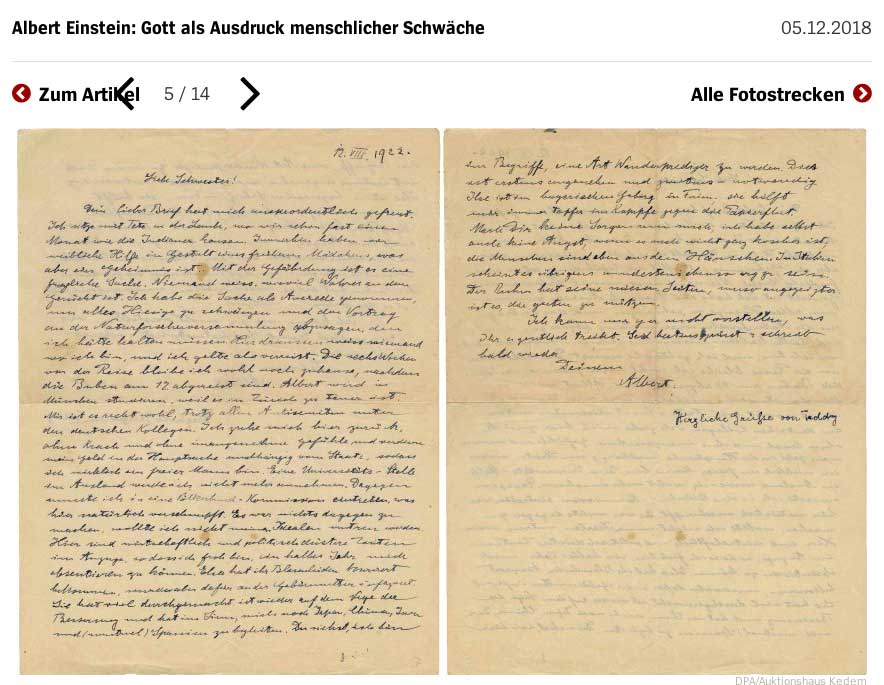 Albert Einstein: Gott als Ausdruck menschlicher Schwäche
05.12.2018
Zum Artikel
5 / 14
Alle Fotostrecken
12. VIII. 1922.
Liebe Schwester!
Dein lieber Brief hat mich ausserordentlich gefreut.
Ich sitze mit Tete in der Laube, wo wir schon fast einen
Monat wie die Indianer hausen. Inzwischen haben wir
weibliche Hilfe in Gestalt eines Mädchens, was
aber ein Geheimnis ist. Mit der Gefährdung ist es eine
fragliche Sache. Niemand weiss, wieviel Wahres an dem
Gerücht ist. Ich habe die Sache als Ausrede genommen,
um alles Hiesige zu schwänzen und den Vortrag
an der Naturforscherversammlung abzusagen, den
ich hätte halten müssen. Hier draussen weiss niemand
wo ich bin, und ich gelte als verreist. Die sechs Wochen
vor der Reise bleibe ich wohl noch zuhause, nachdem
die Buben am 12 abgereist sind. Albert wird in
München studieren, weil es in Zürich zu teuer ist.
Mir ist es recht wohl, trotz aller Antisemiten unter
den deutschen Kollegen. Ich lebe mich hier zurück,
ohne Krach und ohne unangenehme Gefühle und verdiene
mein Geld in der Hauptsache unabhängig vom Staate, sodass
ich wirklich ein freier Mann bin. Eine Universitäts-Stelle
im Ausland werde ich nicht mehr annehmen. Dagegen
musste ich in eine Völkerbund-Kommission eintreten, was
hier natürlich verschnupft. Es war nichts dagegen zu
machen, wollte ich nicht meinen Idealen untreu werden.
Hier sind wirtschaftlich und politisch düstere Zeiten
im Anzuge, sodass ich froh bin, ein halbes Jahr mich
absentieren zu können. Else hat ihr Blasenleiden
bekommen, wurde aber dafür an der Gebärmutter
Sie hat viel durchgemacht ist wieder auf dem Wege der
Besserung und hat im Sinn, mich nach Japan, China, Java
und (eventuell) Spanien zu begleiten. Du siehst, ich bin
im Begriffe, eine Art Wanderprediger zu werden. Das
ist erstens angenehm und zweitens notwendig
Ilse ist im bayerischen Gebirg, sie hilft
mir immer tapfer im Kampfe gegen die Papierflut.
Mach Dir keine Sorgen um mich, ich habe selbst
auch keine Angst, wenn es auch nicht ganz koscher ist,
die Menschen sind eben aus dem Häuschen. In Italien
scheint es übrigens mindestens ebenso arg zu sein.
ist es, die guten zu nützen.
Ich kann mir gar nicht vorstellen, was
Ihr eigentlich treibt. Seid herzlich gegrüsst u. schreib
bald wieder
Deinem
Albert.
Herzliche Grüße von Teddy
DPA/Auktionshaus Kedem